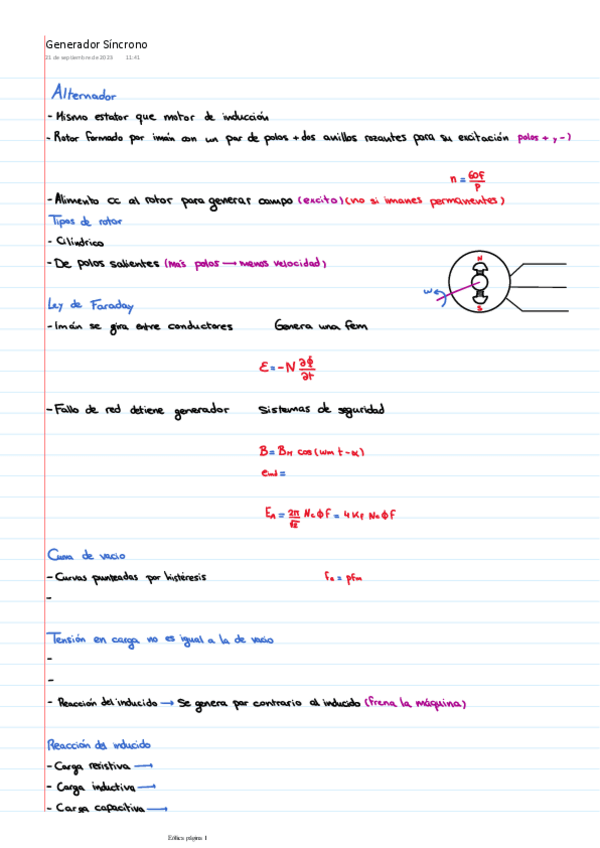 Generador Síncrono
21 de septiembre de 2023 11:41
Alternador
- Mismo estator que motor de inducción
- Rotor formado por imán con un par de polos + dos anillos rozantes para su excitación polos + y -)
n = 60f/p
- Alimento cc al rotor para generar campo (excito) (no si imanes permanentes)
Tipos de rotor
- Cilíndrico
- De polos salientes (más polos → menos velocidad)
N
ω
S
Ley de Faraday
- Imán se gira entre conductores Genera una fem
ε = -N ∂ϕ/∂t
- Fallo de red detiene generador Sistemas de seguridad
B = BM cos(ωm t - α)
eind =
EA = 2π/√2 Nc ϕ F = 4 KF Nc ϕ F
Curva de vacio
- Curvas punteadas por histéresis fe = pfm
-
Tensión en carga no es igual a la de vacio
-
-
- Reacción del inducido → Se genera par contrario al inducido (frena la máquina)
Reacción del inducido
- Carga resistiva →
- Carga inductiva →
- Carga capacitiva →
Eólica página 1